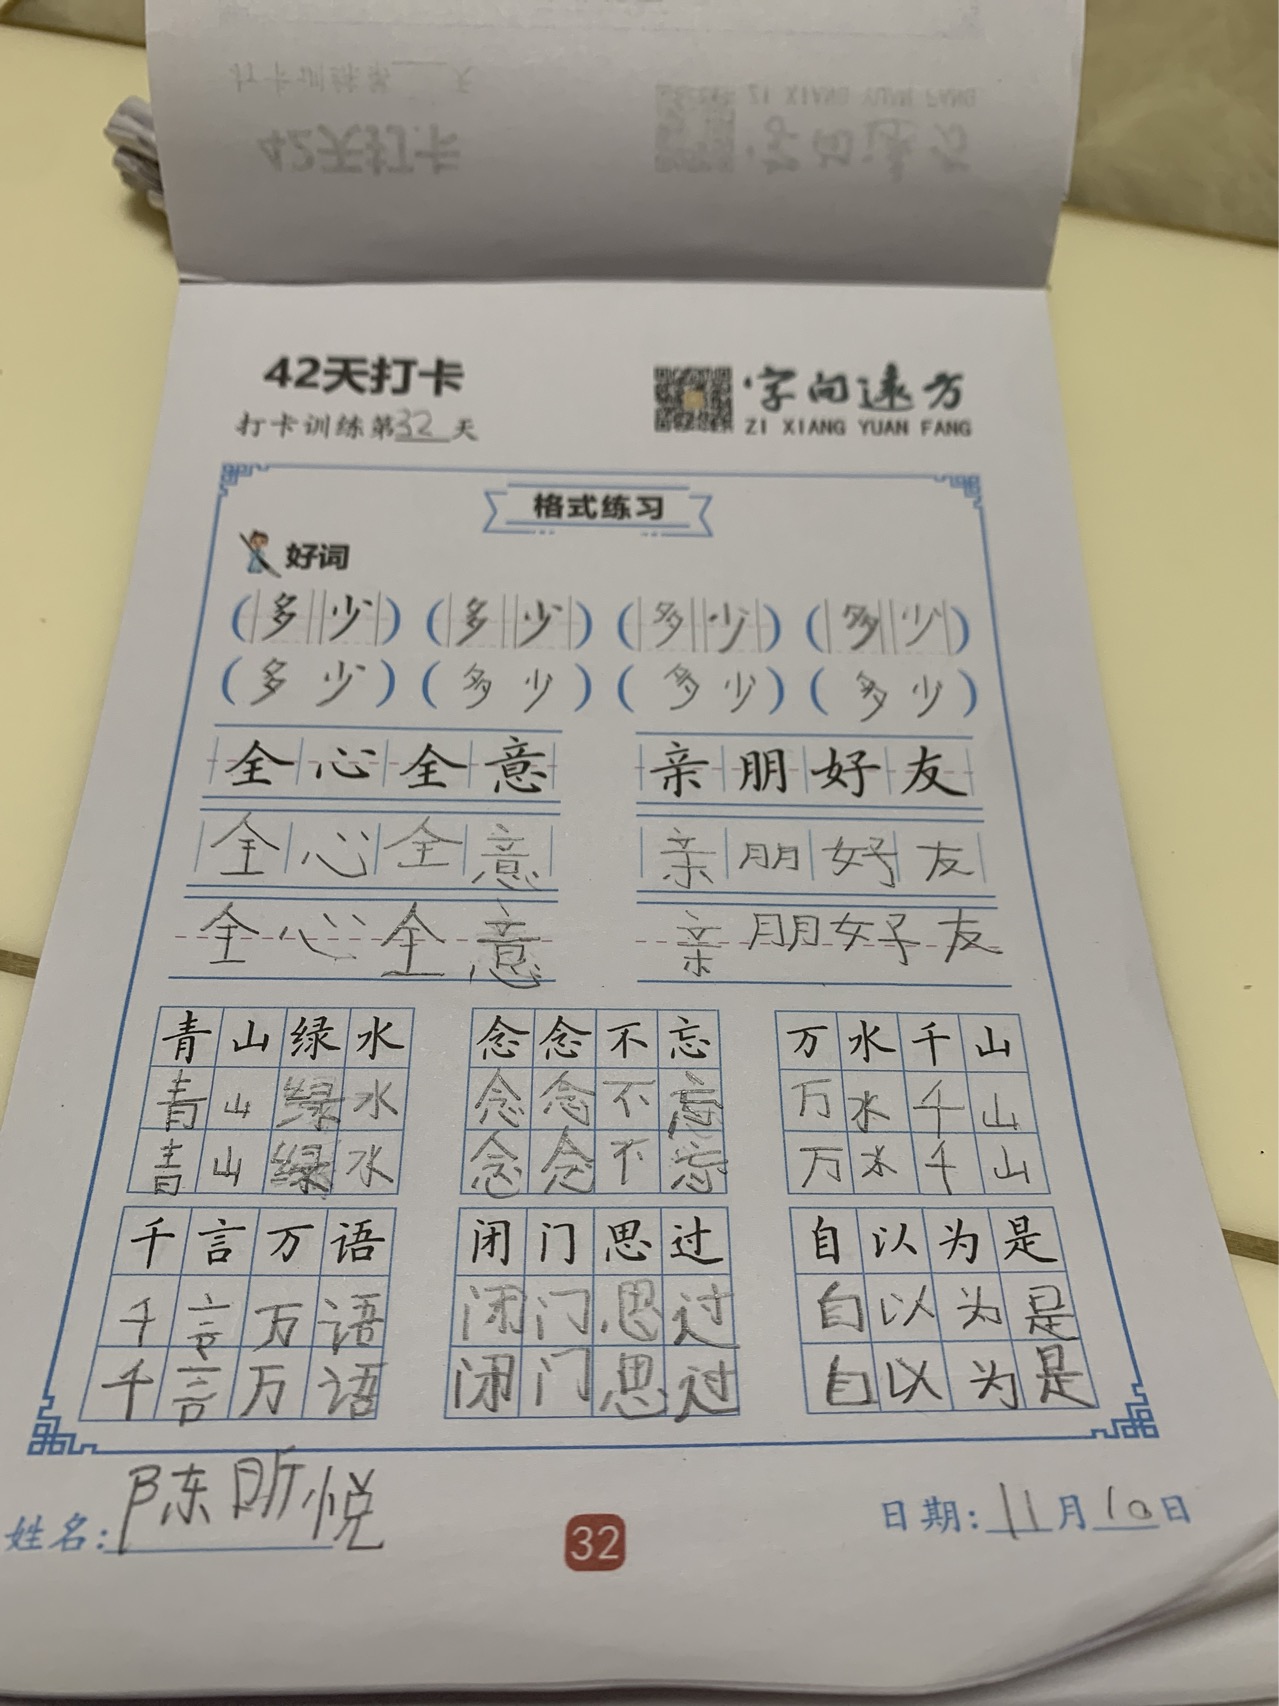 42天打卡
打卡训练第32天
字向远方
ZI XIANG YUAN FANG
格式练习
好词
(多少) (多少) (多少) (多少)
(多少) (多少) (多少) (多少)
全心全意 亲朋好友
全心全意 亲朋好友
全心全意 亲朋好友
青山绿水 念念不忘 万水千山
青山绿水 念念不忘 万水千山
青山绿水 念念不忘 万水千山
千言万语 闭门思过 自以为是
千言万语 闭门思过 自以为是
千言万语 闭门思过 自以为是
姓名:陈昕悦
32
日期:11月10日